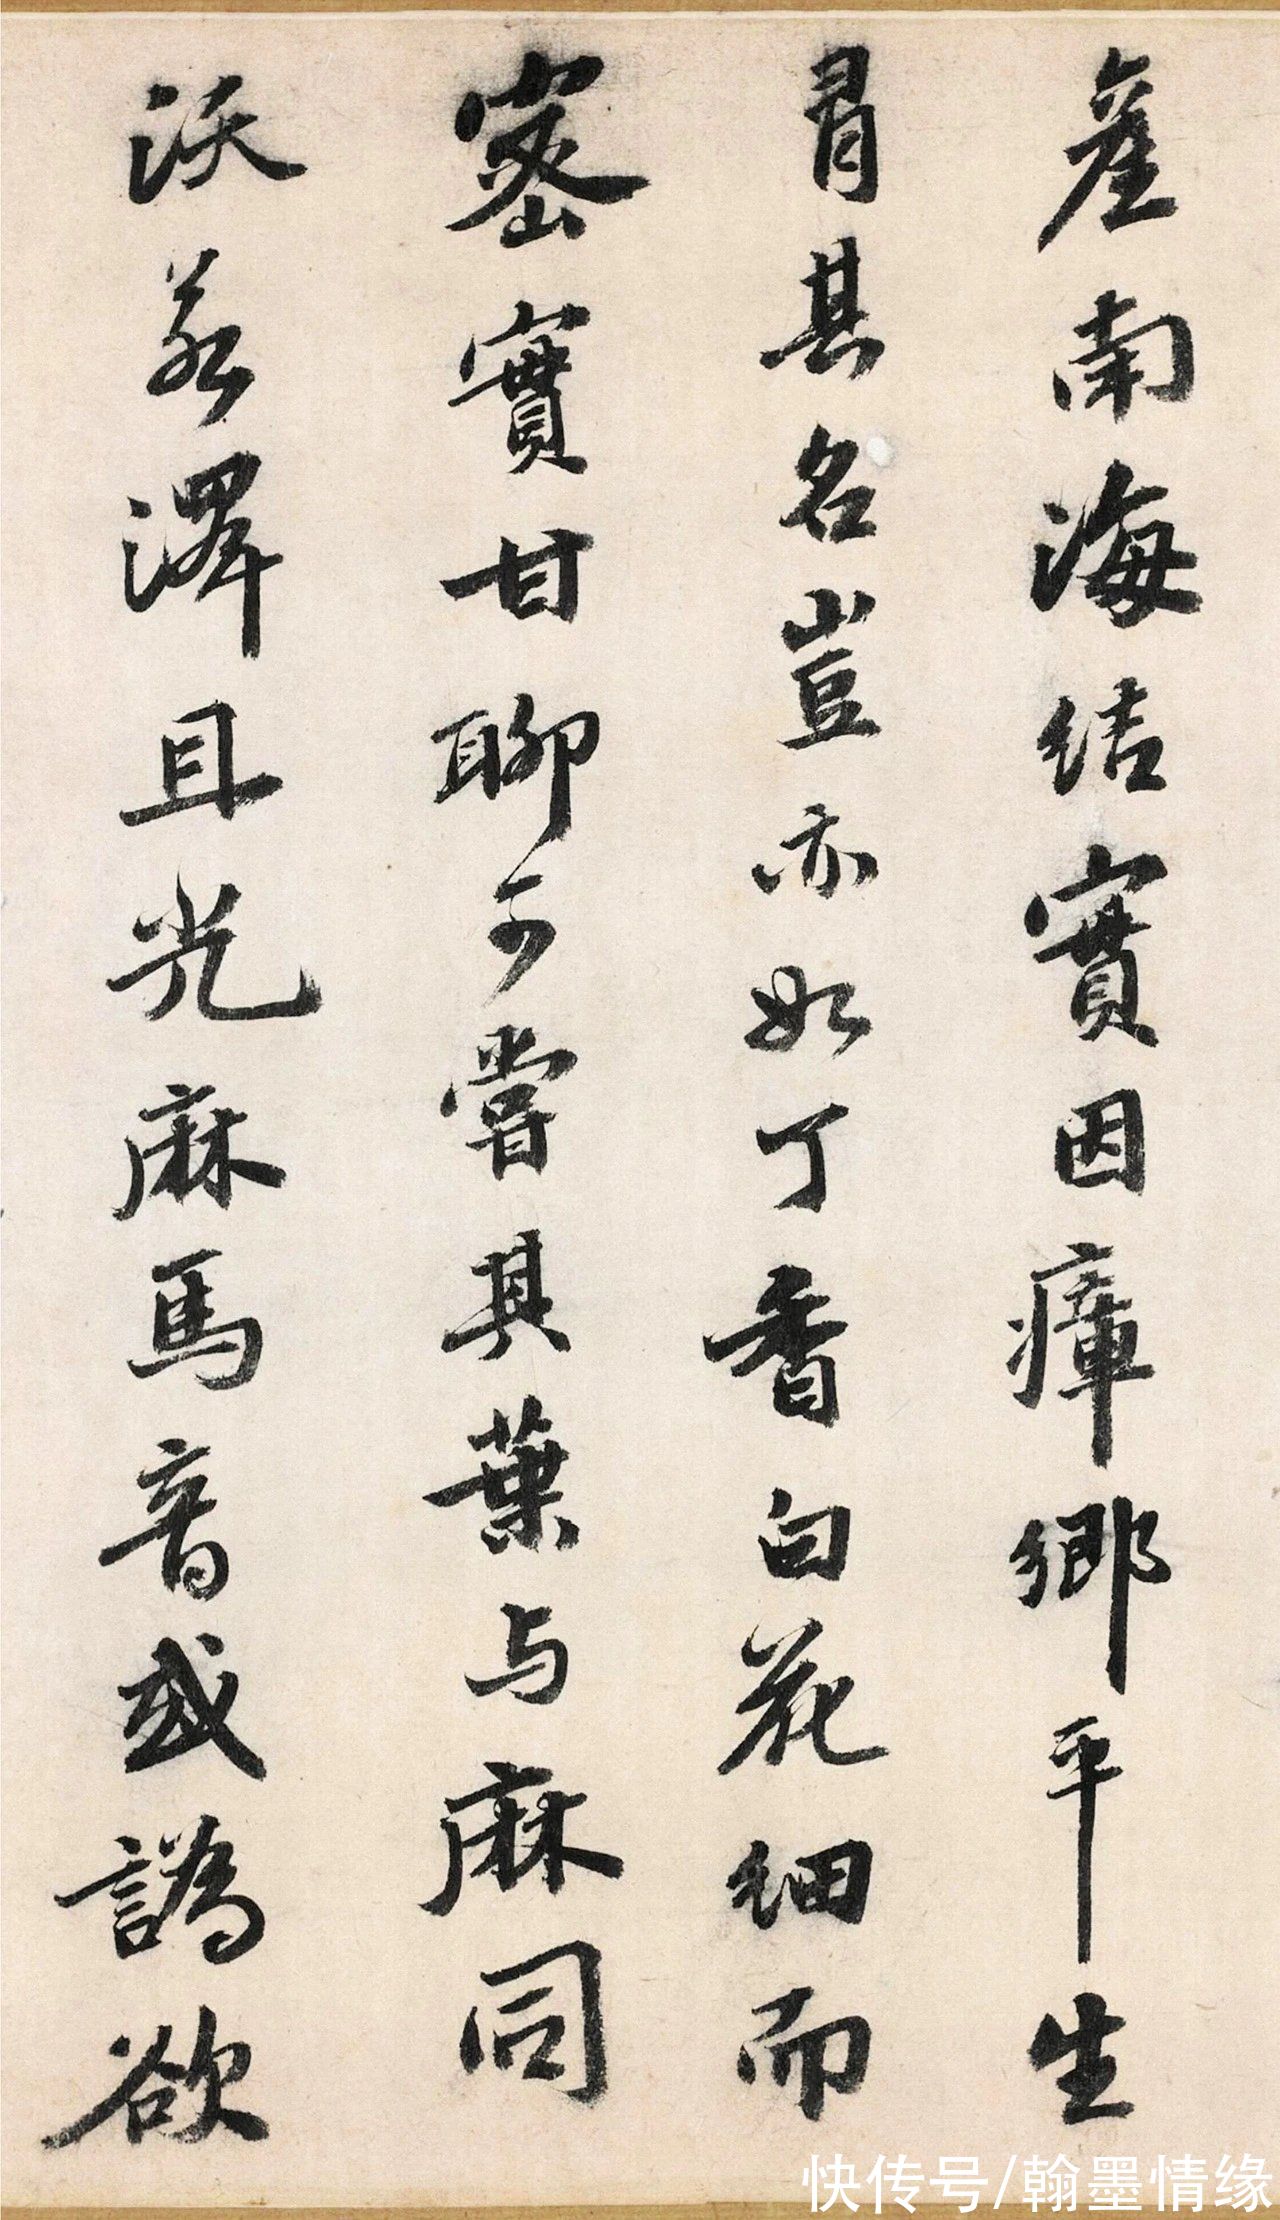 産南海結實因瘴鄉平生
冐其名豈亦如丁香白花細而
密實甘聊可嘗其葉与麻同
沃若澤且光麻馬音或譌欲
快传号/翰墨情缘